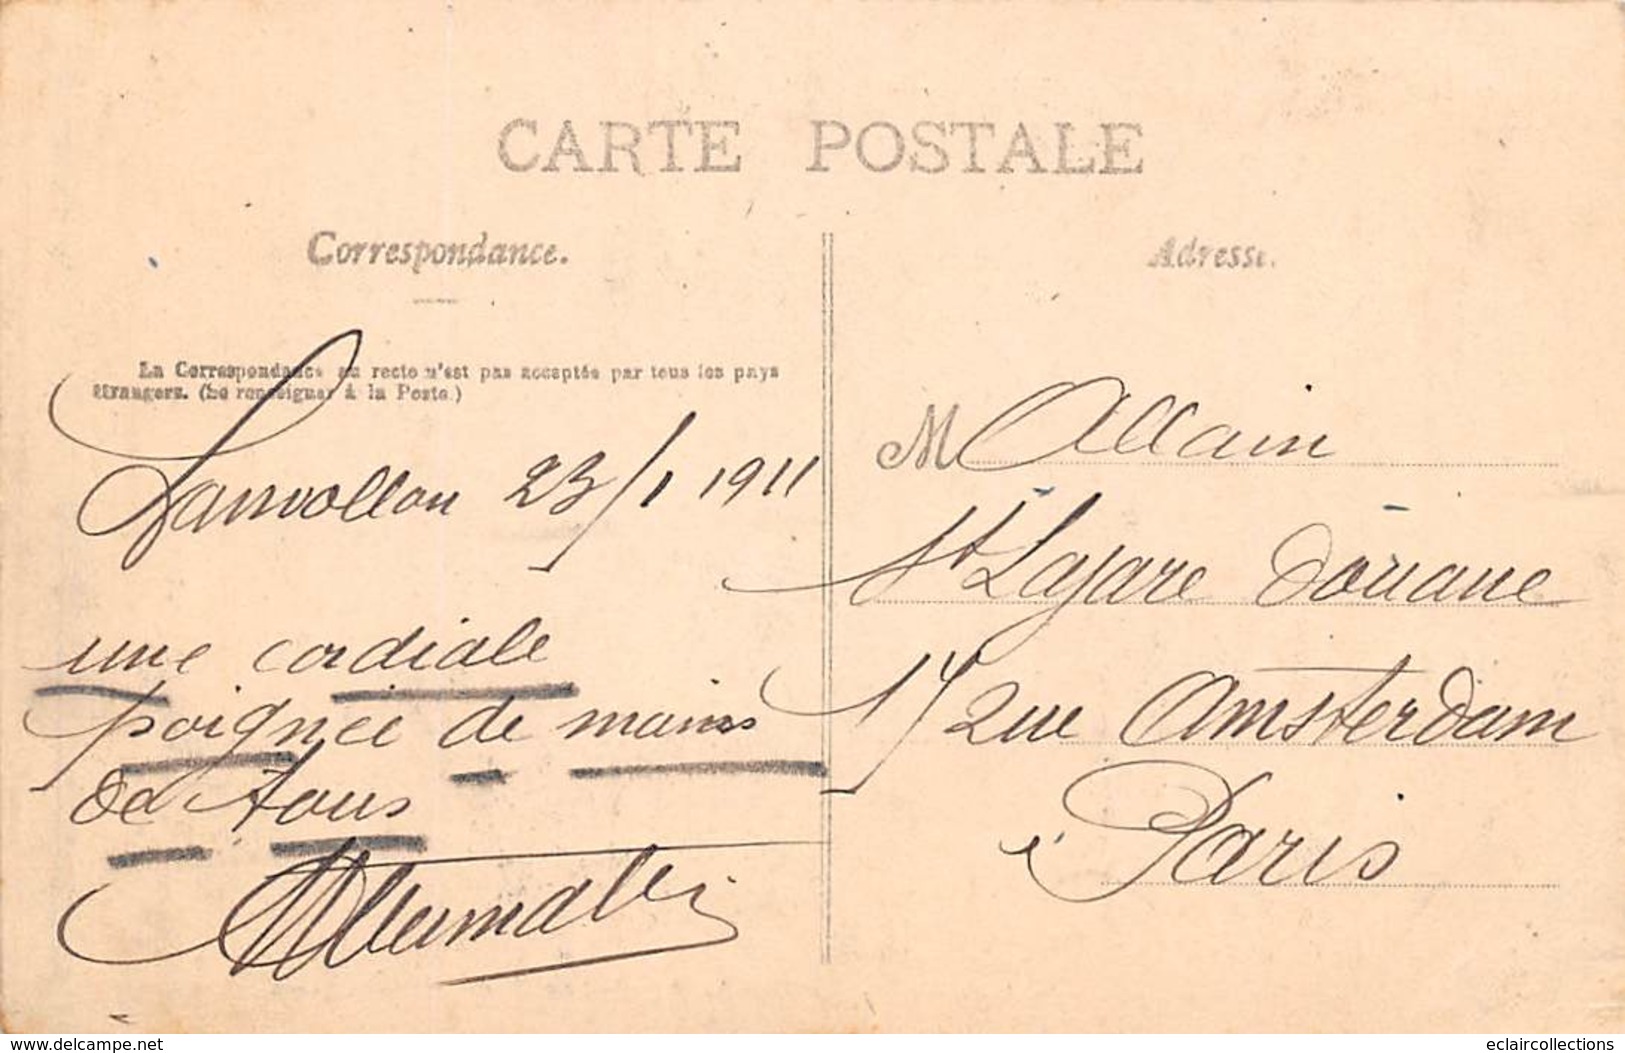 CARTE POSTALE
Correspondance.
Adresse.
La Correspondance au recto n'est pas acceptée par tous les pays
étrangers. (Se renseigner à la Poste.)
Lanvollon 23/1 1911
une cordiale
poignée de mains
de tous
M Allain
St Lazare Douane
17 Rue Amsterdam
à Paris
www.delcampe.net
eclaircollections